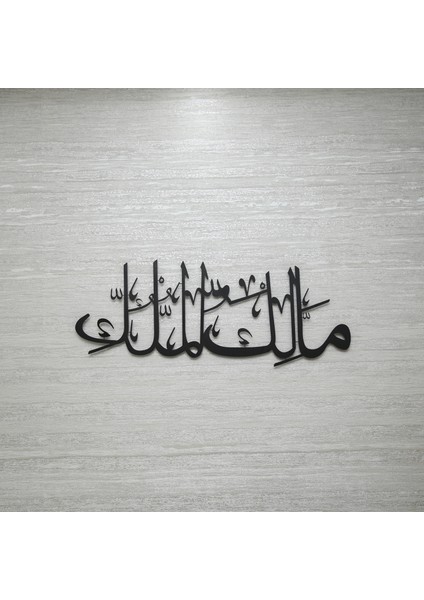 مالك الملك